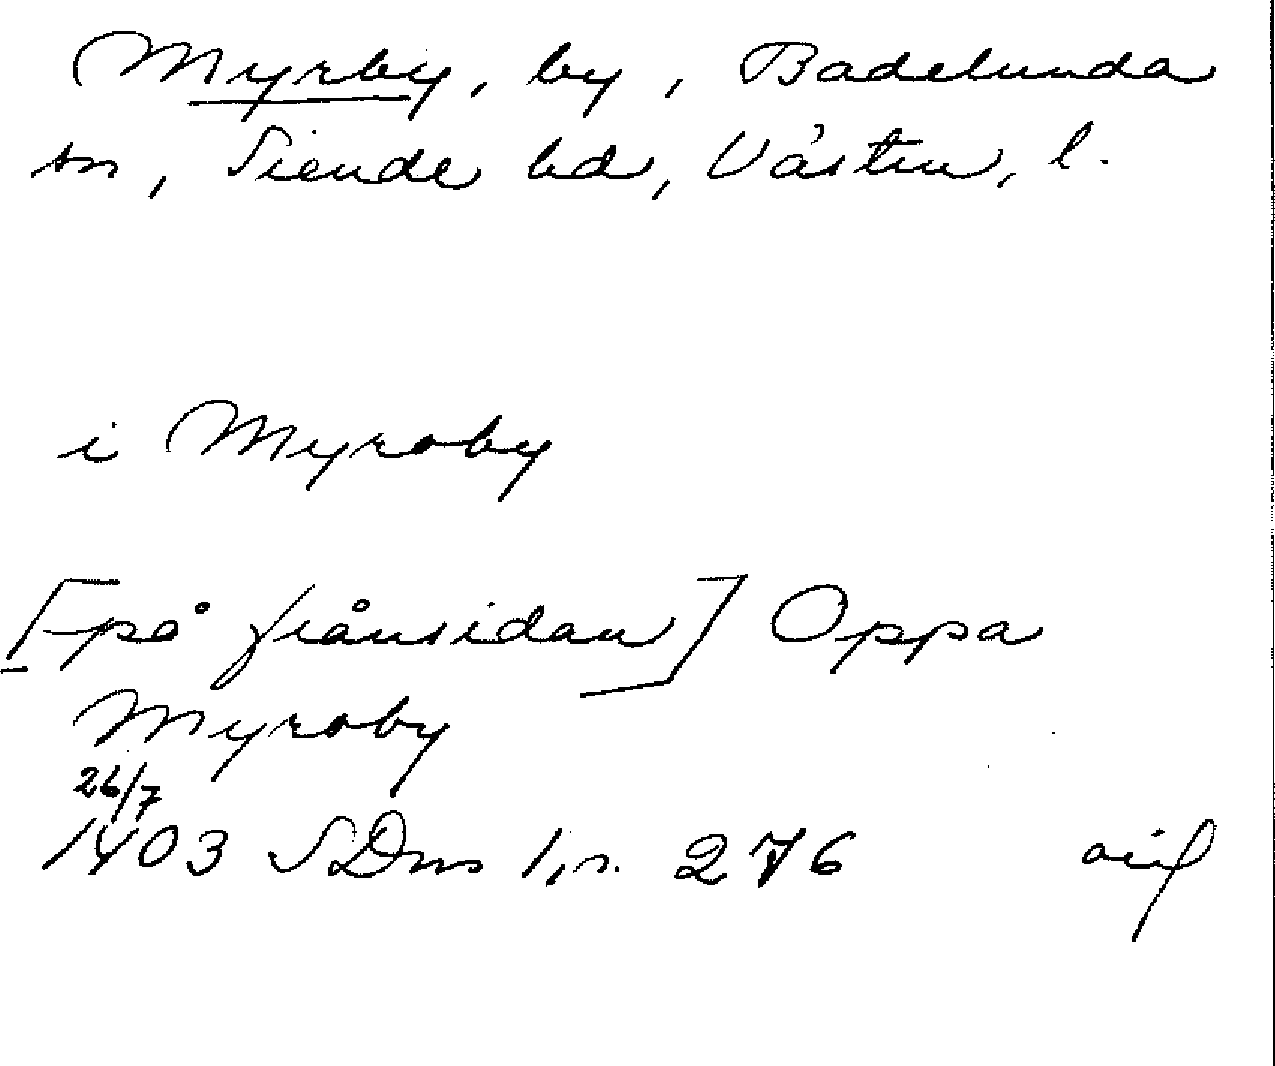 Myrby, by, Badelunda
sn, Siende hd, Västm, l.
i Myroby
[på frånsidan] Oppa
Myroby
26/7
1403 SDns 1, s. 276